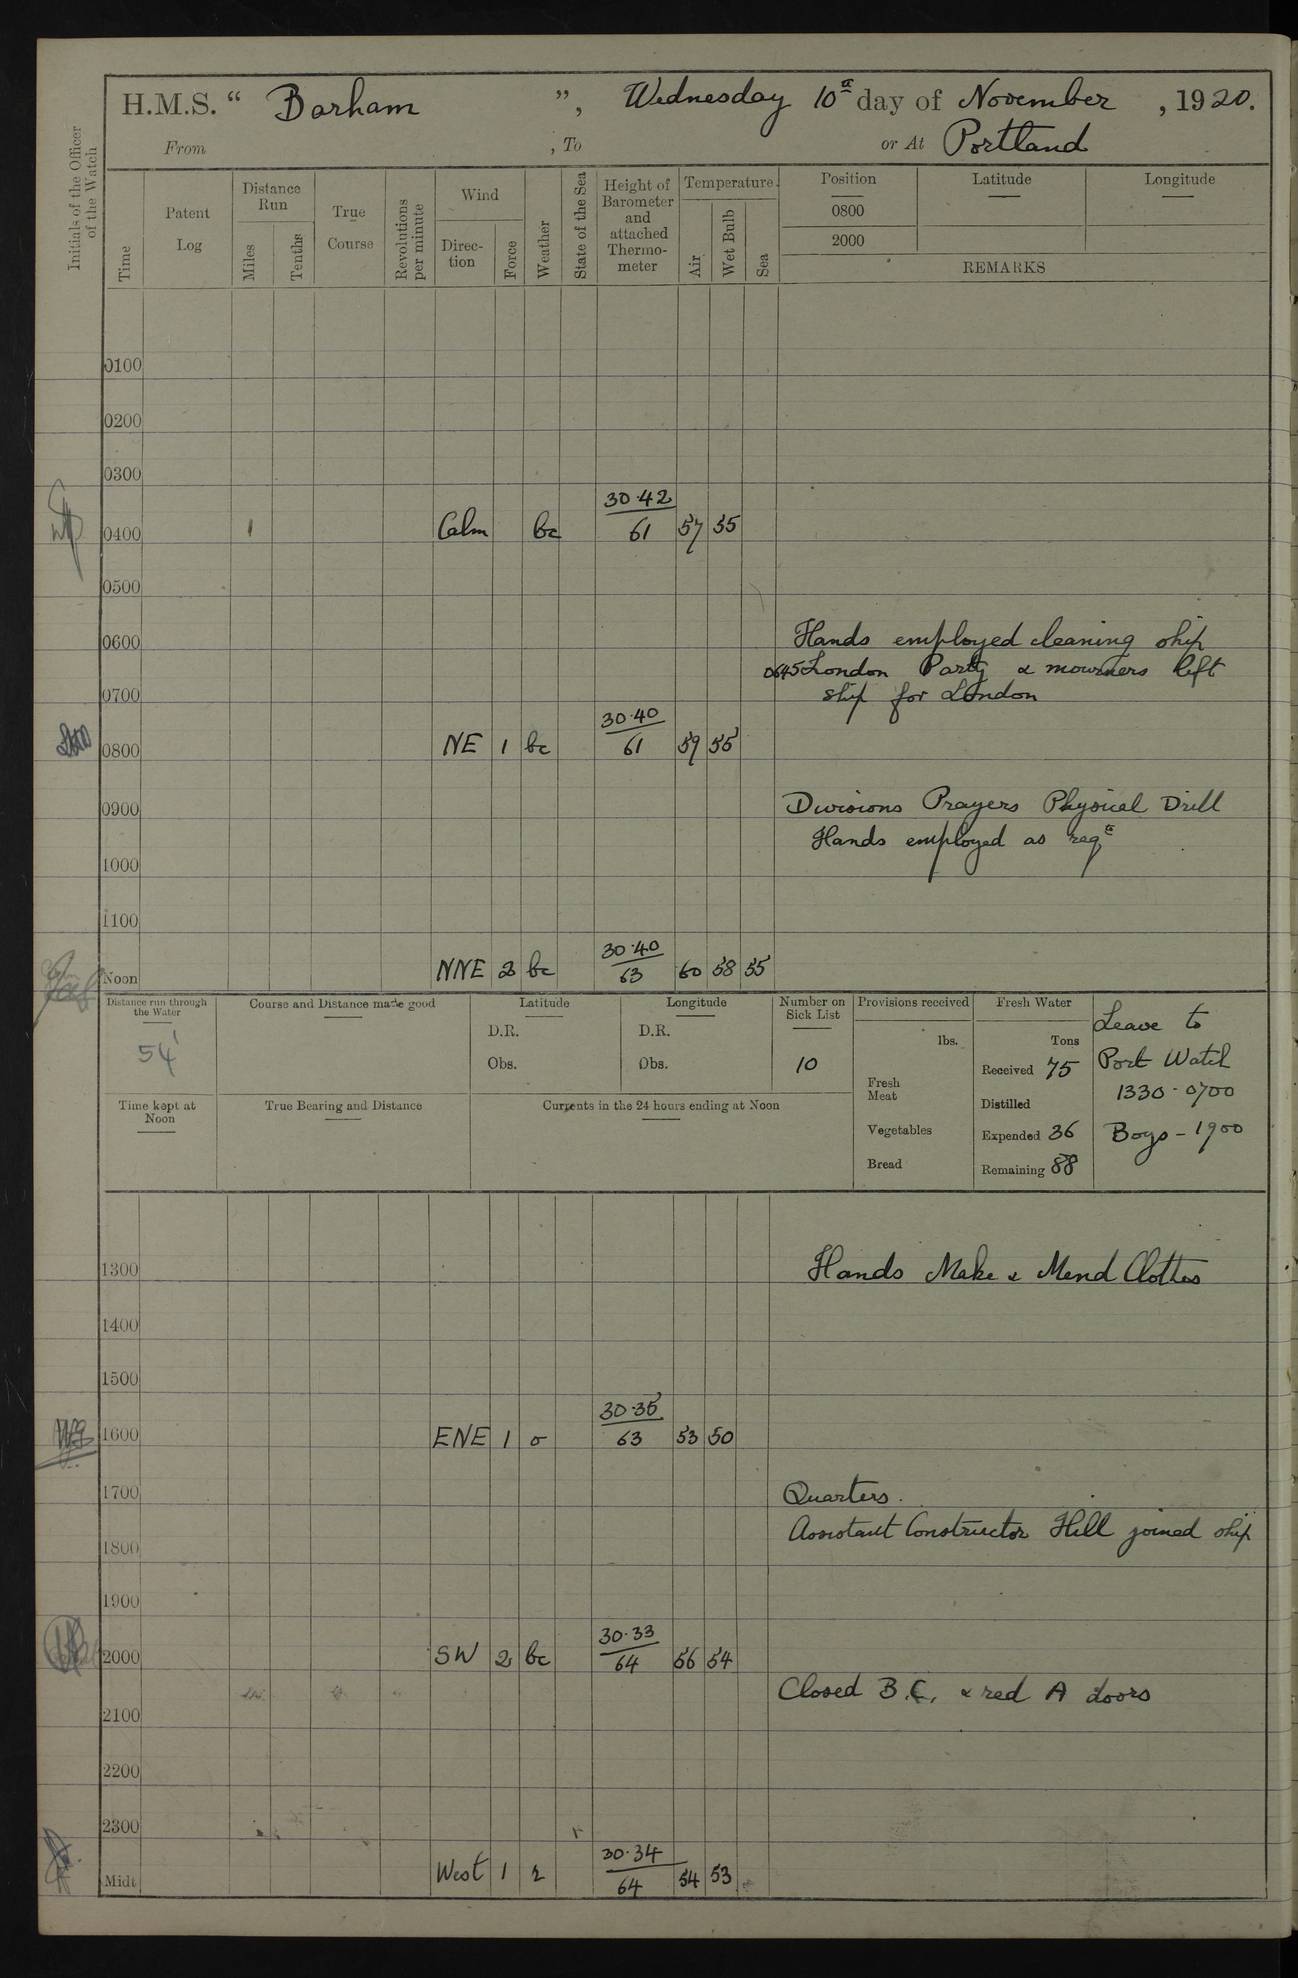 H.M.S. “ Barham ”, Wednesday 10th day of November , 1920.
From , To or At Portland
Initials of the Officer
of the Watch
Time
Patent
Log
Distance
Run
Miles
Tenths
True
Course
Revolutions
per minute
Wind
Direc-
tion
Force
Weather
State of the Sea
Height of
Barometer
and
attached
Thermo-
meter
Temperature.
Air
Wet Bulb
Sea
Position
0800
2000
Latitude
Longitude
REMARKS
0100
0200
0300
30.42
0400 1 Calm bc 61 57 55
0500
0600 Hands employed cleaning ship
0645 London Party & mourners left
0700 ship for London
30.40
0800 NE 1 bc 61 59 55
0900 Divisions Prayers Physical Drill
Hands employed as reqd
1000
1100
30.40
Noon NNE 2 bc 63 60 58 55
Distance run through
the Water
54'
Course and Distance made good
Latitude
D.R.
Obs.
Longitude
D.R.
Obs.
Number on
Sick List
10
Provisions received
lbs.
Fresh
Meat
Vegetables
Bread
Fresh Water
Tons
Received 75
Distilled
Expended 36
Remaining 88
Leave to
Port Watch
1330 - 0700
Boys - 1900
Time kept at
Noon
True Bearing and Distance
Currents in the 24 hours ending at Noon
1300 Hands Make & Mend Clothes
1400
1500
30.35
1600 ENE 1 o 63 53 50
1700 Quarters.
Assistant Constructor Hill joined ship
1800
1900
30.33
2000 SW 2 bc 64 56 54
Closed B.C. & red A doors
2100
2200
2300
30.34
Midt West 1 r 64 54 53